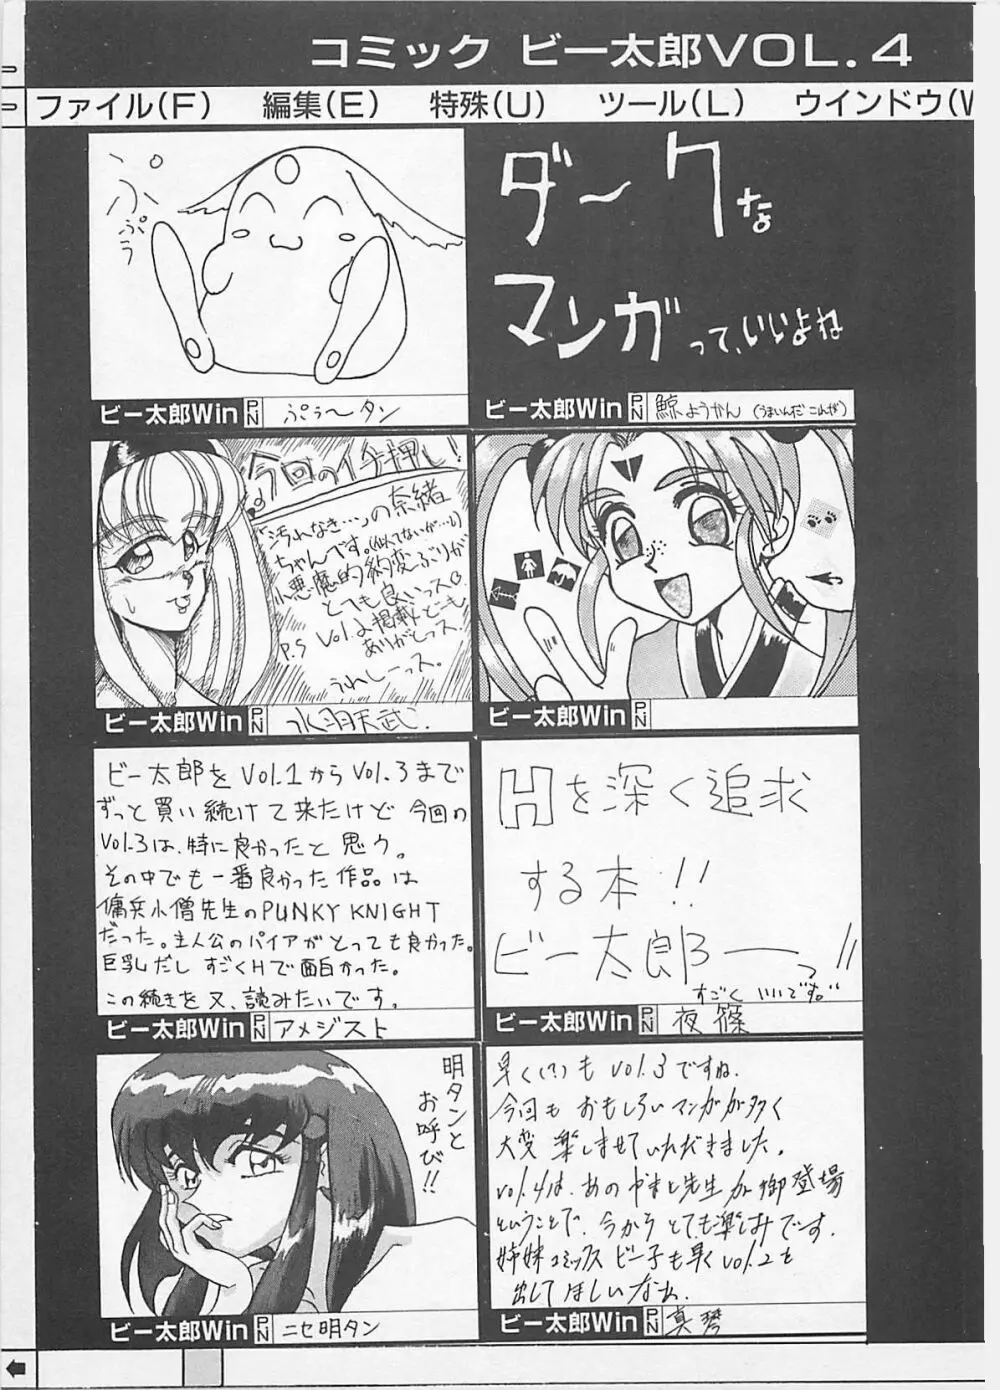 コミック ビー太郎VOL.4
ファイル(F) 編集(E) 特殊(U) ツール(L) ウインドウ(W
ぷ
ぷぅ
ビー太郎Win PN ぷぅ〜タン
ダ〜クな
マンガって、いいよね
ビー太郎Win PN 鯨ようかん (うまいんだこれが)
今回のイチ押し!
「汚れなき…」の奈緒
ちゃんです。(似てないが…)
小悪魔的豹変ぶりが
とても良いっス。
P.S Vol.2掲載ども
ありがとっス
うれしーっス。
ビー太郎Win PN 水羽天武.
ビー太郎Win PN
ビー太郎をVol.1からVol.3まで
ずっと買い続けて来たけど今回の
Vol.3は、特に良かったと思う。
その中でも一番良かった作品は
傭兵小僧先生のPUNKY KNIGHT
だった。主人公のパイアがとっても良かった。
巨乳だしすごくHで面白かった。
この続きを又、読みたいです。
ビー太郎Win PN アメジスト
Hを深く追求
する本!!
ビー太郎ーっ!!
すごくいいです。"
ビー太郎Win PN 夜篠
明タンと
お呼び!!
ビー太郎Win PN ニセ明タン
早く(?)もVol.3ですね.
今回もおもしろいマンガが多く
大変楽しませていただきました。
Vol.4は、あのやまと先生が御登場
ということで、今からとても楽しみです.
姉妹コミックスビー子も早くVol.2を
出してほしいなぁ.
ビー太郎Win PN 真琴